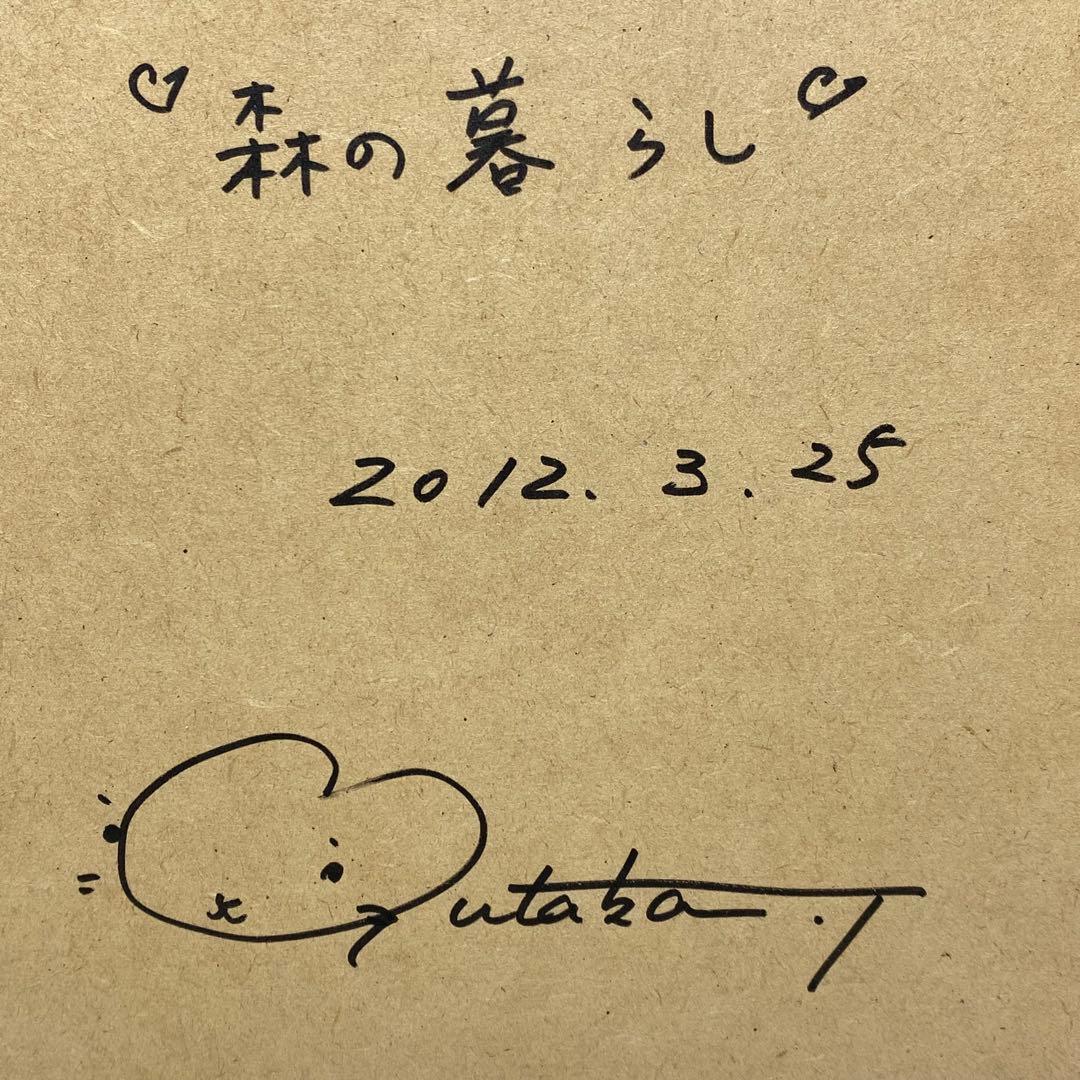 森の暮らし
2012. 3. 25
Yutaka.T